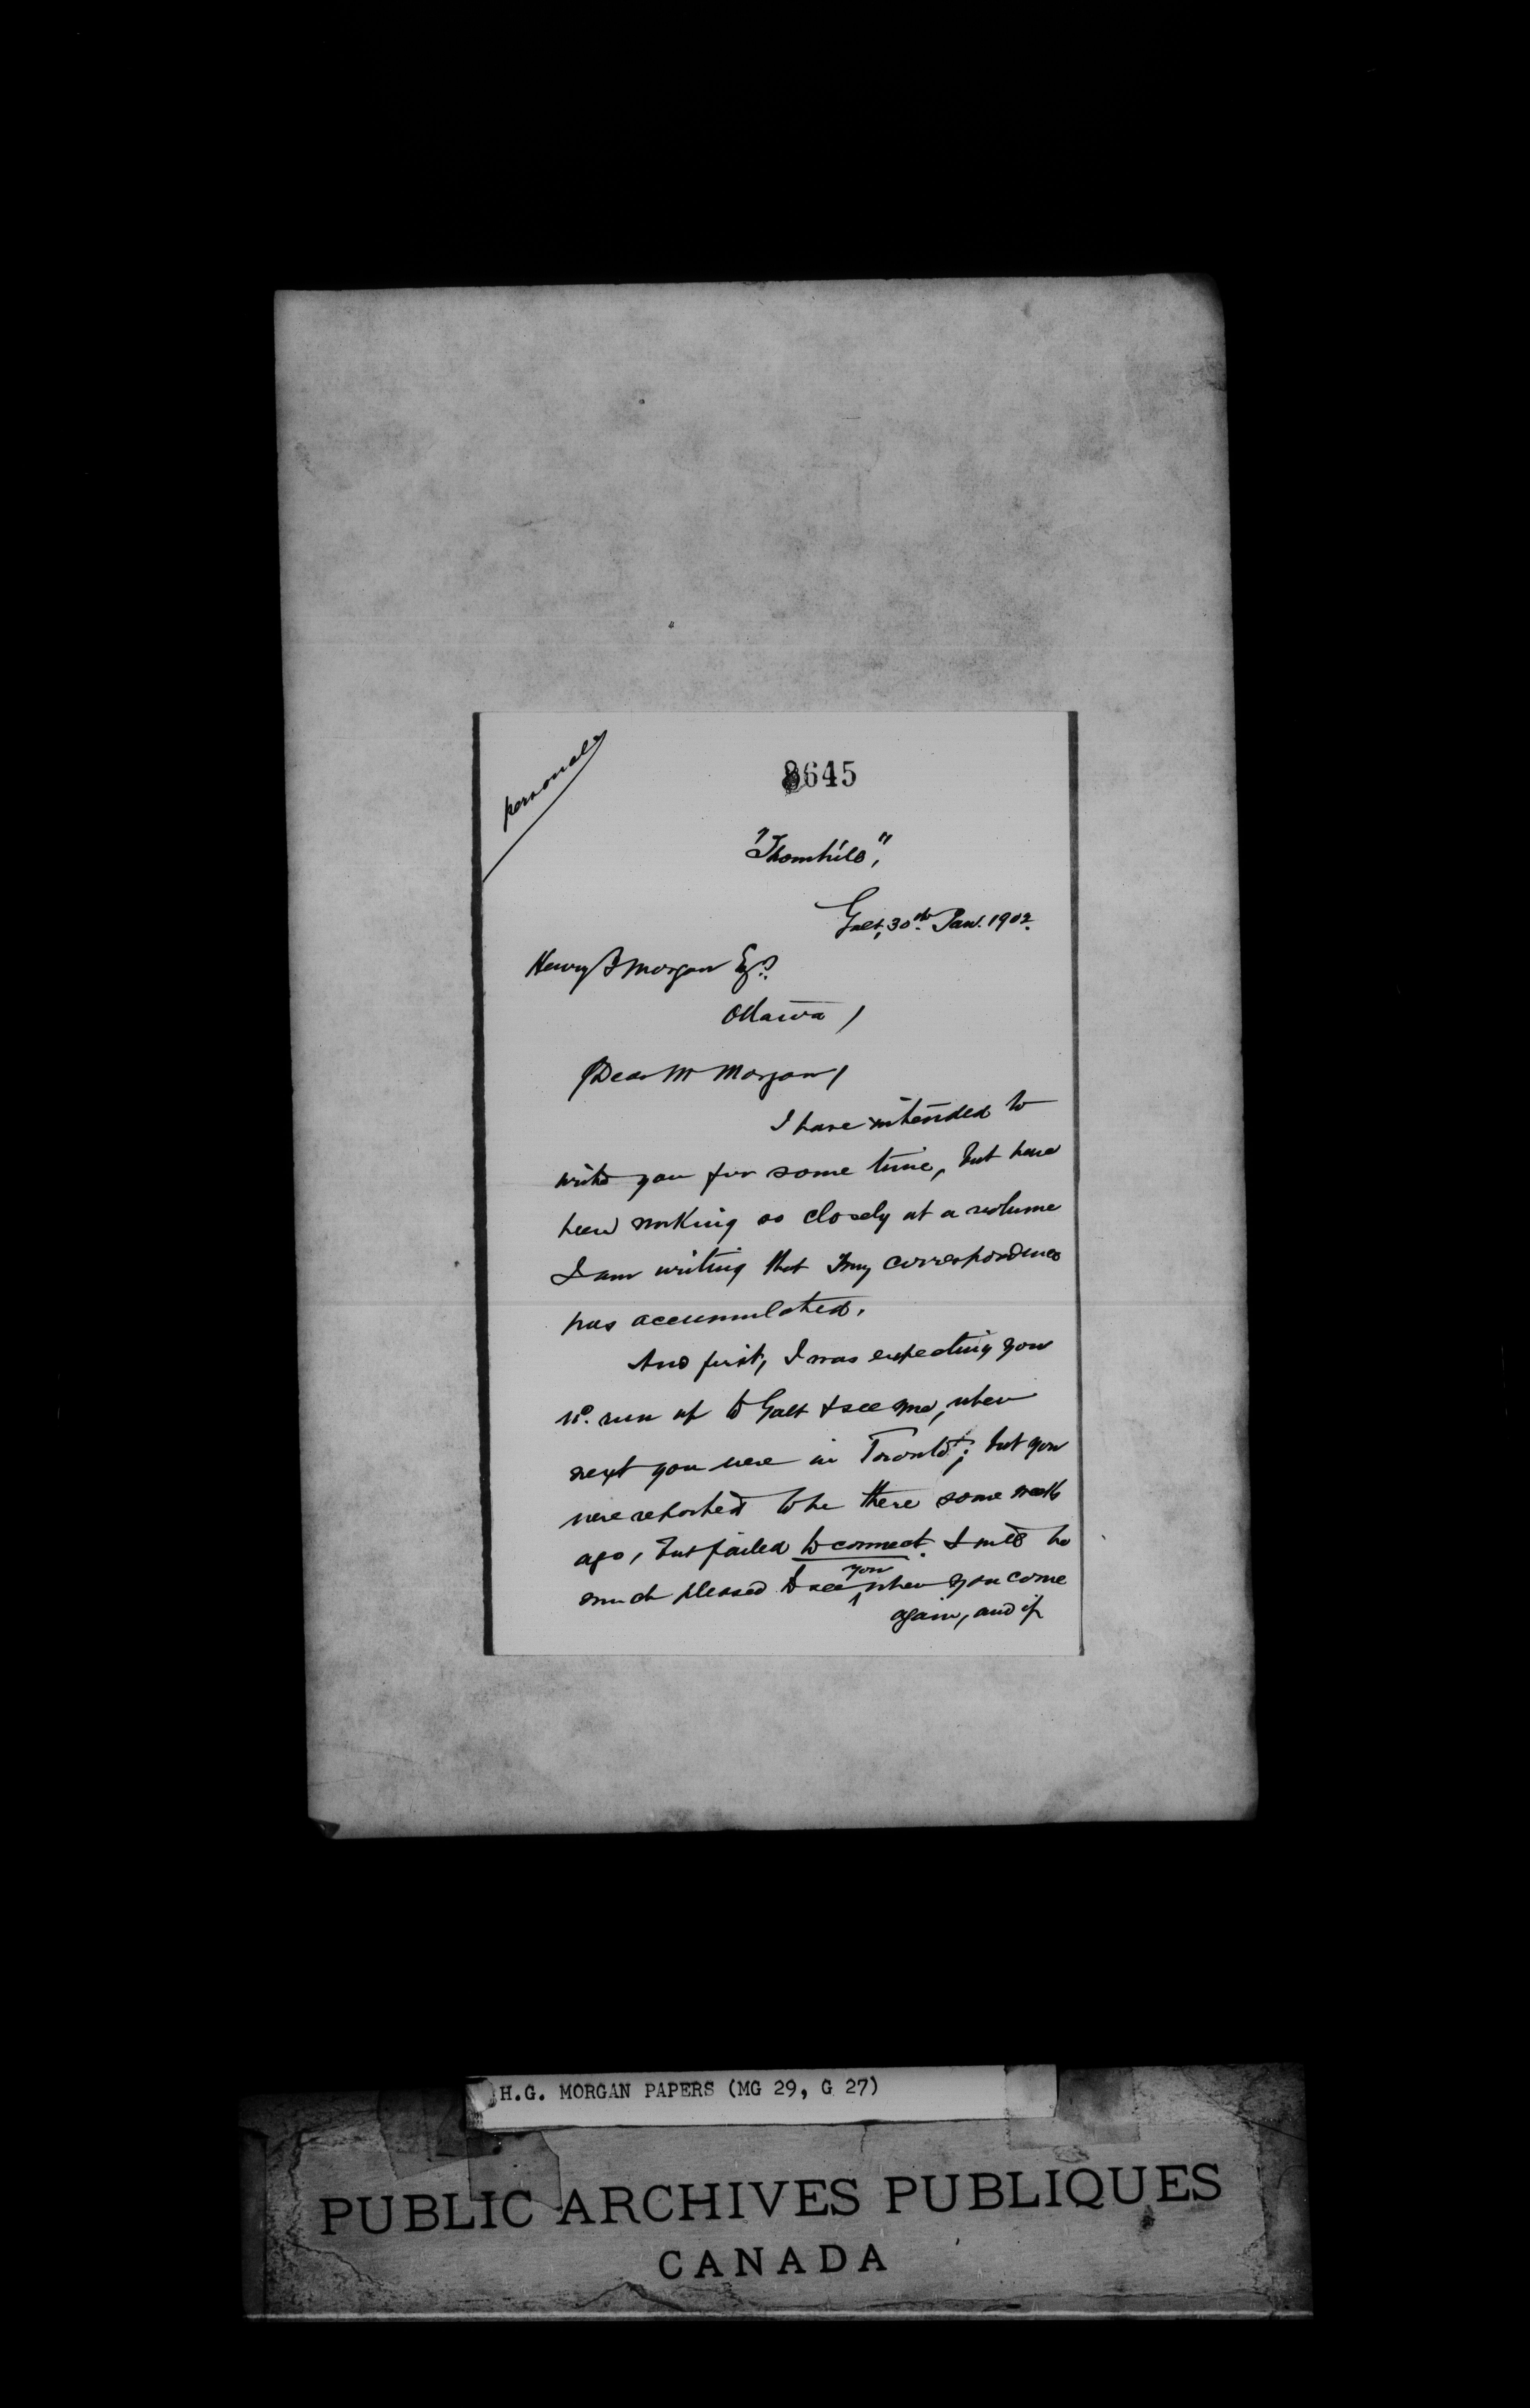 personal
8645
"Thornhill",
Galt, 30th Jan. 1902.
Henry J Morgan Esq.
Ottawa /
Dear Mr Morgan /
I have intended to
write you for some time, but have
been working so closely at a volume
I am writing that my correspondence
has accumulated.
And first, I was expecting you
wd. run up to Galt & see me, when
next you were in Toronto; but you
were reported to be there some weeks
ago, but failed to connect. I will be
much pleased to see you when you come
again, and if
H.G. MORGAN PAPERS (MG 29, G 27)
PUBLIC ARCHIVES PUBLIQUES
CANADA